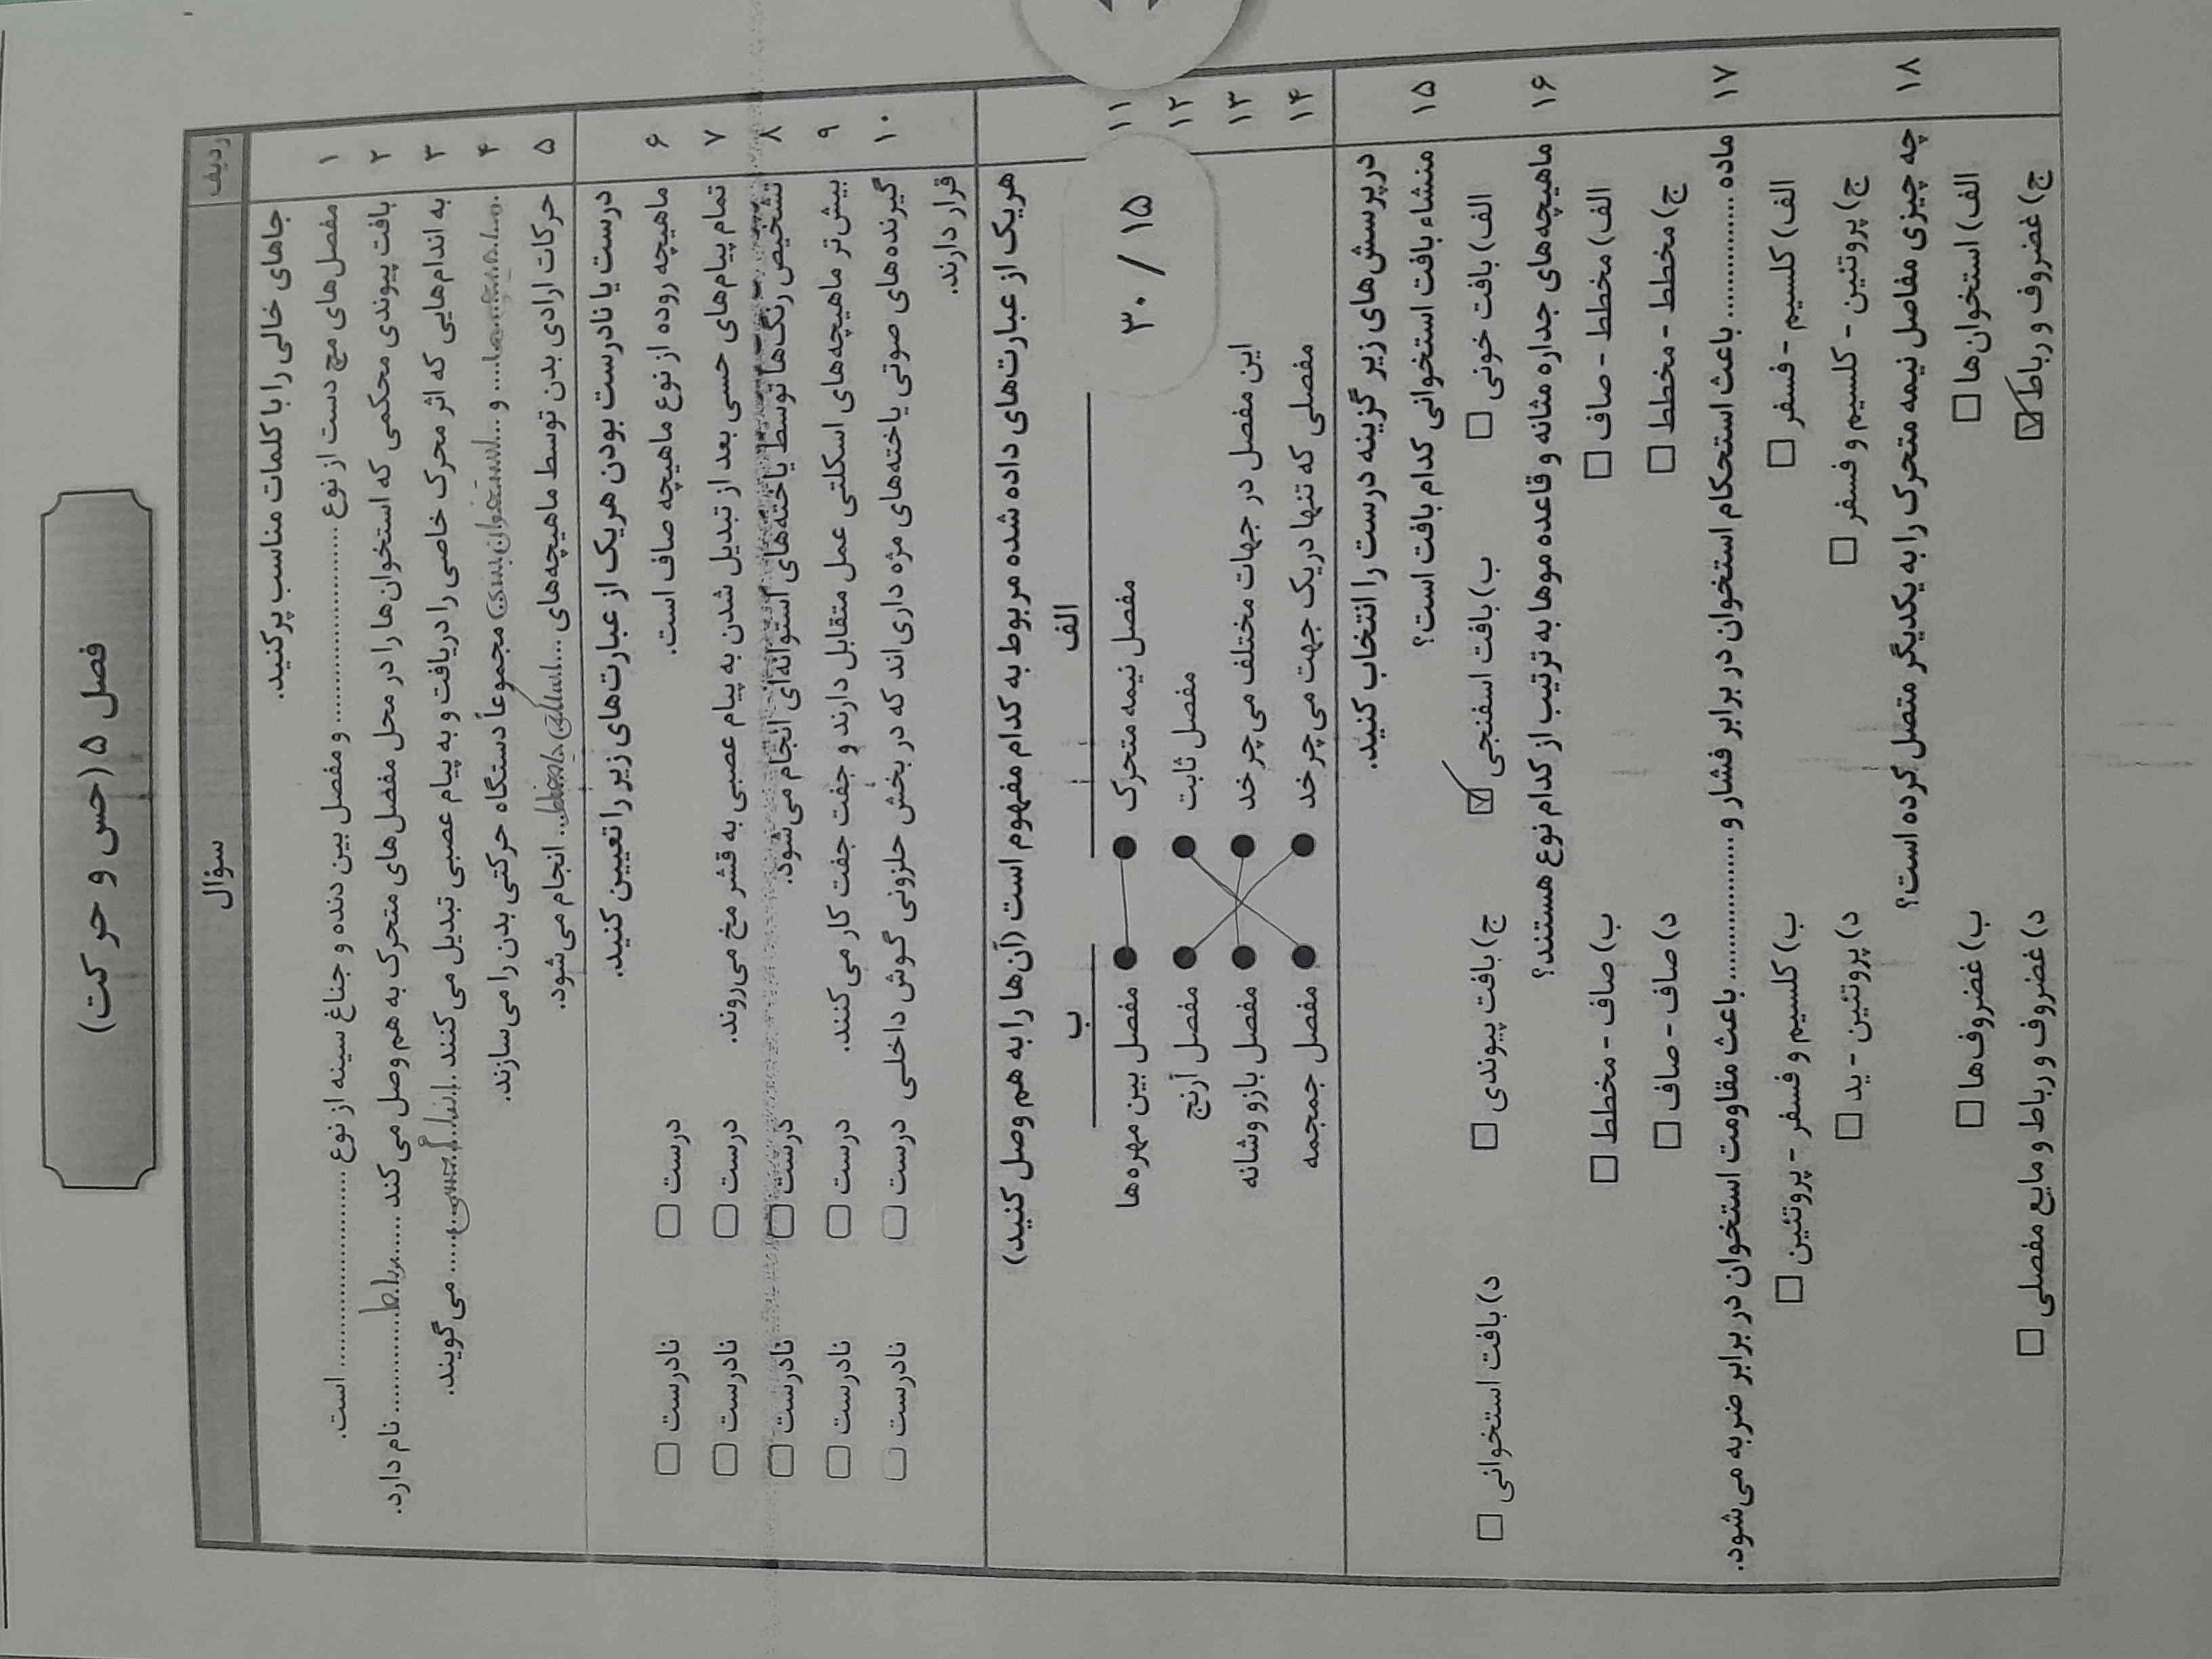 فصل ۵ (حس و حرکت)
ردیف سؤال
جاهای خالی را با کلمات مناسب پر کنید.
۱ مفصل‌های مچ دست از نوع .................... و مفصل بین دنده و جناغ سینه از نوع .................... است.
۲ بافت پیوندی محکمی که استخوان‌ها را در محل مفصل‌های متحرک به هم وصل می‌کند ......رباط...... نام دارد.
۳ به اندام‌هایی که اثر محرک خاصی را دریافت و به پیام عصبی تبدیل می‌کنند ..اندام حسی.. می‌گویند.
۴ ................ و ....استخوان‌بندی مجموعاً دستگاه حرکتی بدن را می‌سازند.
۵ حرکات ارادی بدن توسط ماهیچه‌های ................ انجام می‌شود.
درست یا نادرست بودن هریک از عبارت‌های زیر را تعیین کنید.
۶ ماهیچه روده از نوع ماهیچه صاف است. درست نادرست
۷ تمام پیام‌های حسی بعد از تبدیل شدن به پیام عصبی به قشر مخ می‌روند. درست نادرست
۸ تشخیص رنگ‌ها توسط یاخته‌های استوانه‌ای انجام می‌شود. درست نادرست
۹ بیش‌تر ماهیچه‌های اسکلتی عمل متقابل دارند و جفت جفت کار می‌کنند. درست نادرست
۱۰ گیرنده‌های صوتی یاخته‌های مژه داری‌اند که در بخش حلزونی گوش داخلی درست نادرست
قرار دارند.
هریک از عبارت‌های داده شده مربوط به کدام مفهوم است (آن‌ها را به هم وصل کنید)
الف ب
۱۱ مفصل نیمه متحرک مفصل بین مهره‌ها
۱۲ مفصل ثابت مفصل آرنج
۱۳ این مفصل در جهات مختلف می‌چرخد مفصل بازو وشانه
۱۴ مفصلی که تنها دریک جهت می‌چرخد مفصل جمجمه
۱۵ / ۳۰
در پرسش‌های زیر گزینه درست را انتخاب کنید.
۱۵ منشاء بافت استخوانی کدام بافت است؟
الف) بافت خونی ب) بافت اسفنجی ج) بافت پیوندی د) بافت استخوانی
۱۶ ماهیچه‌های جداره مثانه و قاعده موها به ترتیب از کدام نوع هستند؟
الف) مخطط - صاف ب) صاف - مخطط
ج) مخطط - مخطط د) صاف - صاف
۱۷ ماده ............... باعث استحکام استخوان در برابر فشار و ............... باعث مقاومت استخوان در برابر ضربه می‌شود.
الف) کلسیم - فسفر ب) کلسیم و فسفر - پروتئین
ج) پروتئین - کلسیم و فسفر د) پروتئین - ید
۱۸ چه چیزی مفاصل نیمه متحرک را به یکدیگر متصل کرده است؟
الف) استخوان‌ها ب) غضروف‌ها
ج) غضروف و رباط د) غضروف و رباط و مایع مفصلی